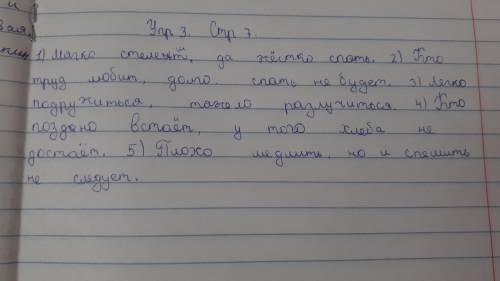 и
Упр 3. Стр 7.
вая
1) Мягко стелент, да жёстко спать. 2) Кто
труд любит, долго. спать не будет. 3) Легко
подружиться, тяжело разлучиться. 4) Кто
поздено встаёт, у того хлеба не
достаёт. 5) Плохо медлить, но и спешить
не следует.